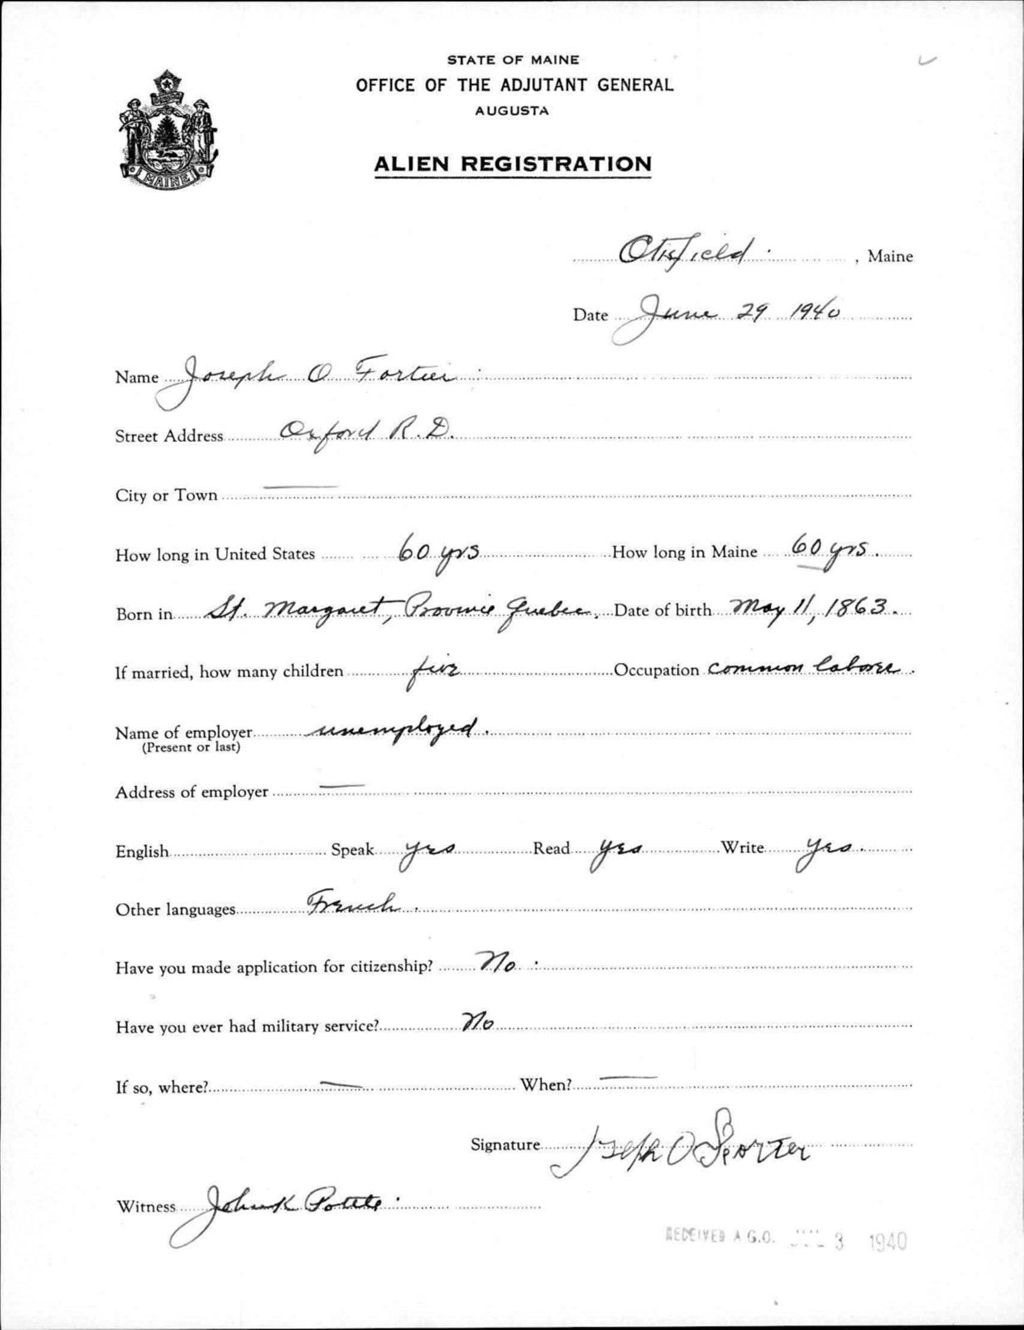 STATE OF MAINE
OFFICE OF THE ADJUTANT GENERAL
AUGUSTA
MAINE
ALIEN REGISTRATION
Otisfield, Maine
Date June 29 1940
Name Joseph O Fortier
Street Address Oxford R.D.
City or Town —
How long in United States 60 yrs How long in Maine 60 yrs.
Born in St. Margaret, Province Quebec. Date of birth May 11, 1863.
If married, how many children five Occupation common laborer.
Name of employer unemployed.
(Present or last)
Address of employer —
English Speak yes Read yes Write yes.
Other languages French.
Have you made application for citizenship? No.
Have you ever had military service? No
If so, where? — When? —
Signature Joseph O
Witness John K
RECEIVED A.G.O. 3 1940